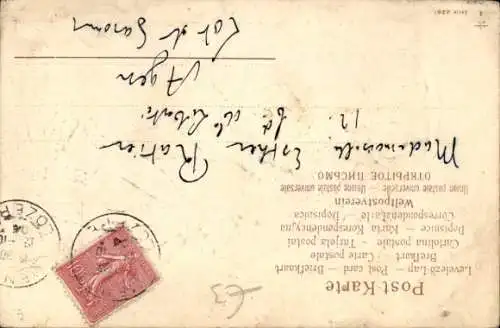 Post-Karte
Levelező-Lap — Post card — Briefkaart
Brefkort — Carte postale
Cartolina postale — Tarjeta postal
Dopisnice — Karta Korespondencyjna
Correspondenzkarte — Dopisnica
Weltpostverein
Union postale universelle — Union postale universelle
ОТКРЫТОЕ ПИСЬМО
Mademoiselle Esther Ratier
12. Bd de la Liberté
Agen
Lot et Garonne
LOZÈRE
£3